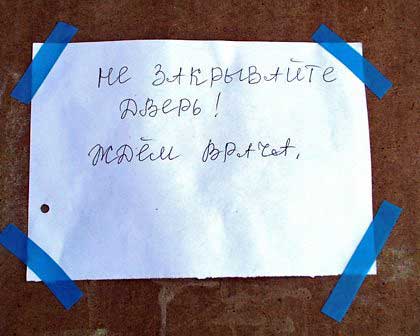 НЕ ЗАКРЫВАЙТЕ
ДВЕРЬ!
ЖДЁМ ВРАЧА.